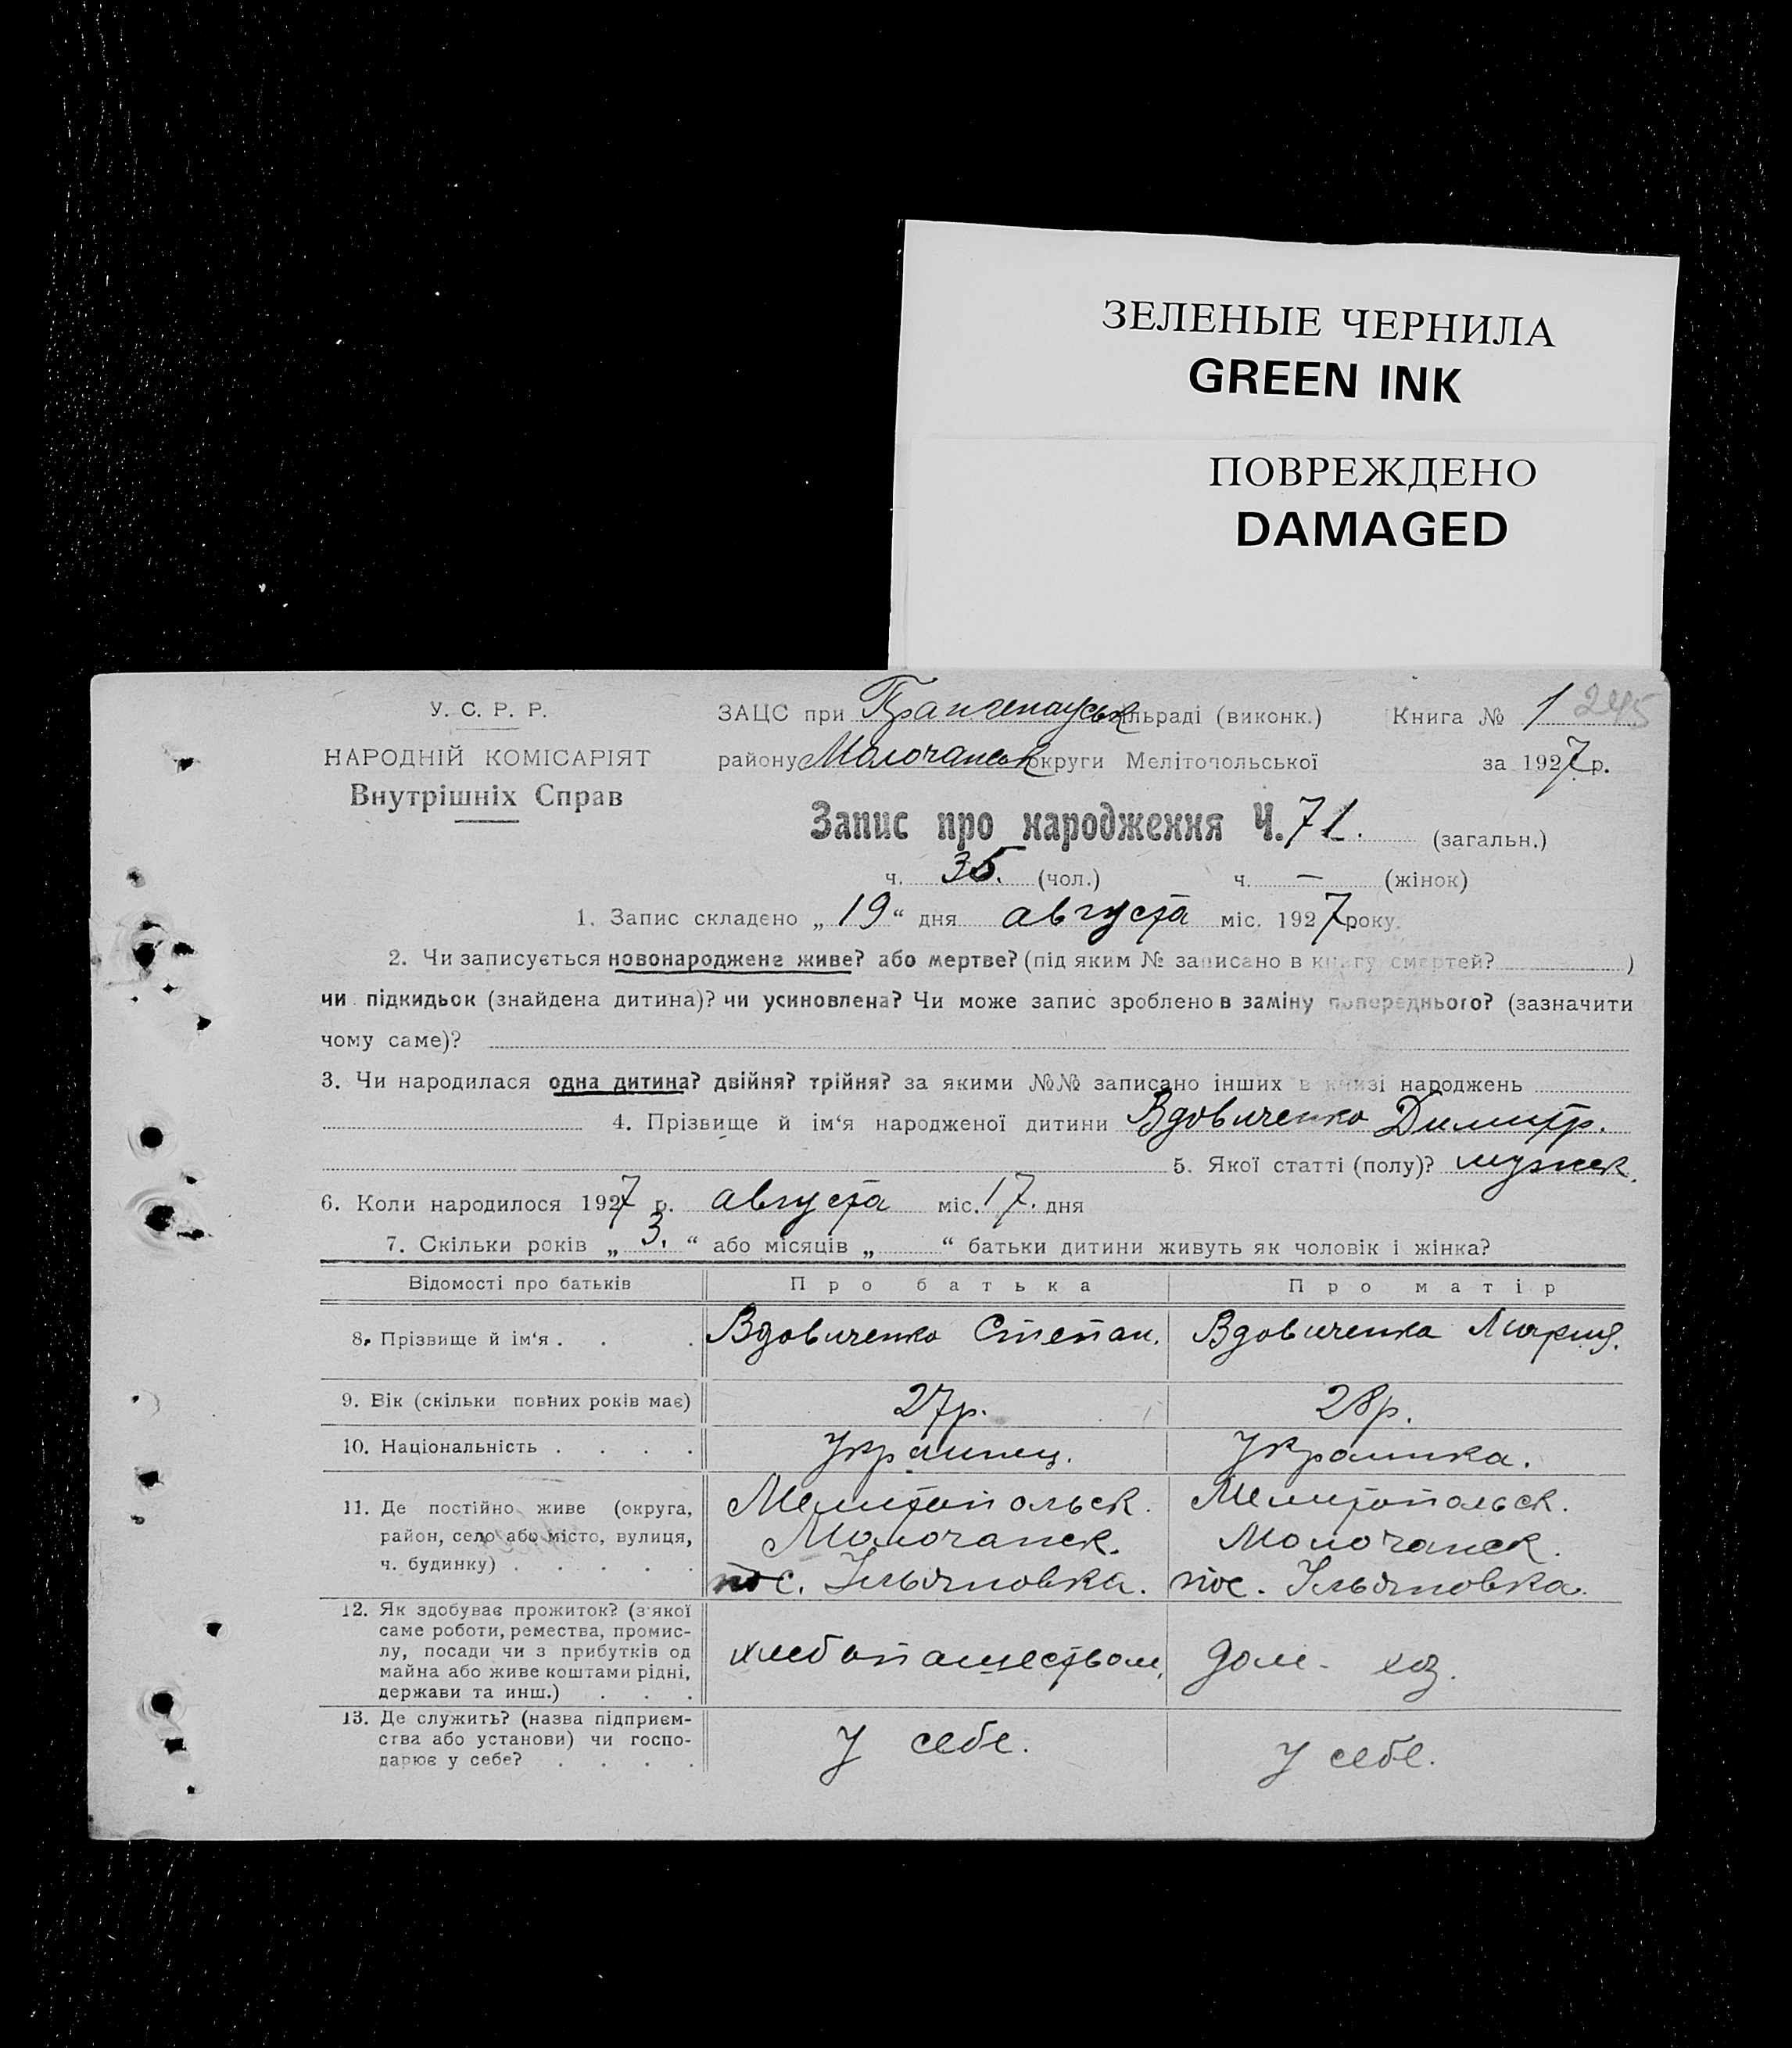 ЗЕЛЕНЫЕ ЧЕРНИЛА
GREEN INK
ПОВРЕЖДЕНО
DAMAGED
У. С. Р. Р.
НАРОДНІЙ КОМІСАРІЯТ
Внутрішніх Справ
ЗАЦС при льраді (виконк.) Книга № 1 245
району Молочанськ округи Мелітопольської за 1927 р.
Запис про народження Ч. 71. (загальн.)
ч. 35. (чол.) ч. — (жінок)
1. Запис складено „19“ дня августа міс. 1927 року.
2. Чи записується новонароджене живе? або мертве? (під яким № записано в книгу смертей? )
чи підкидьок (знайдена дитина)? чи усиновлена? Чи може запис зроблено в заміну попереднього? (зазначити
чому саме)?
3. Чи народилася одна дитина? двійня? трійня? за якими №№ записано інших в книзі народжень
4. Прізвище й ім‘я народженої дитини Вдовиченко Димитр.
5. Якої статті (полу)? мужск.
6. Коли народилося 1927 р. августа міс. 17. дня
7. Скільки років „3.“ або місяців „ “ батьки дитини живуть як чоловік і жінка?
Відомості про батьків Про батька Про матір
8. Прізвище й ім‘я . . . Вдовиченко Степан. Вдовиченка Мария.
9. Вік (скільки повних років має) 27р. 28р.
10. Національність . . . . Украинец. Украинка.
11. Де постійно живе (округа, Мелитопольск. Мелитопольск.
район, село або місто, вулиця, Молочанск. Молочанск.
ч. будинку) . . . . . пос. Ульяновка. пос. Ульяновка.
12. Як здобуває прожиток? (з якої
саме роботи, ремества, промис-
лу, посади чи з прибутків од хлебопашеством, дом. хоз.
майна або живе коштами рідні,
держави та инш.) . . .
13. Де служить? (назва підприєм-
ства або установи) чи госпо- У себе. У себе.
дарює у себе? . . . .